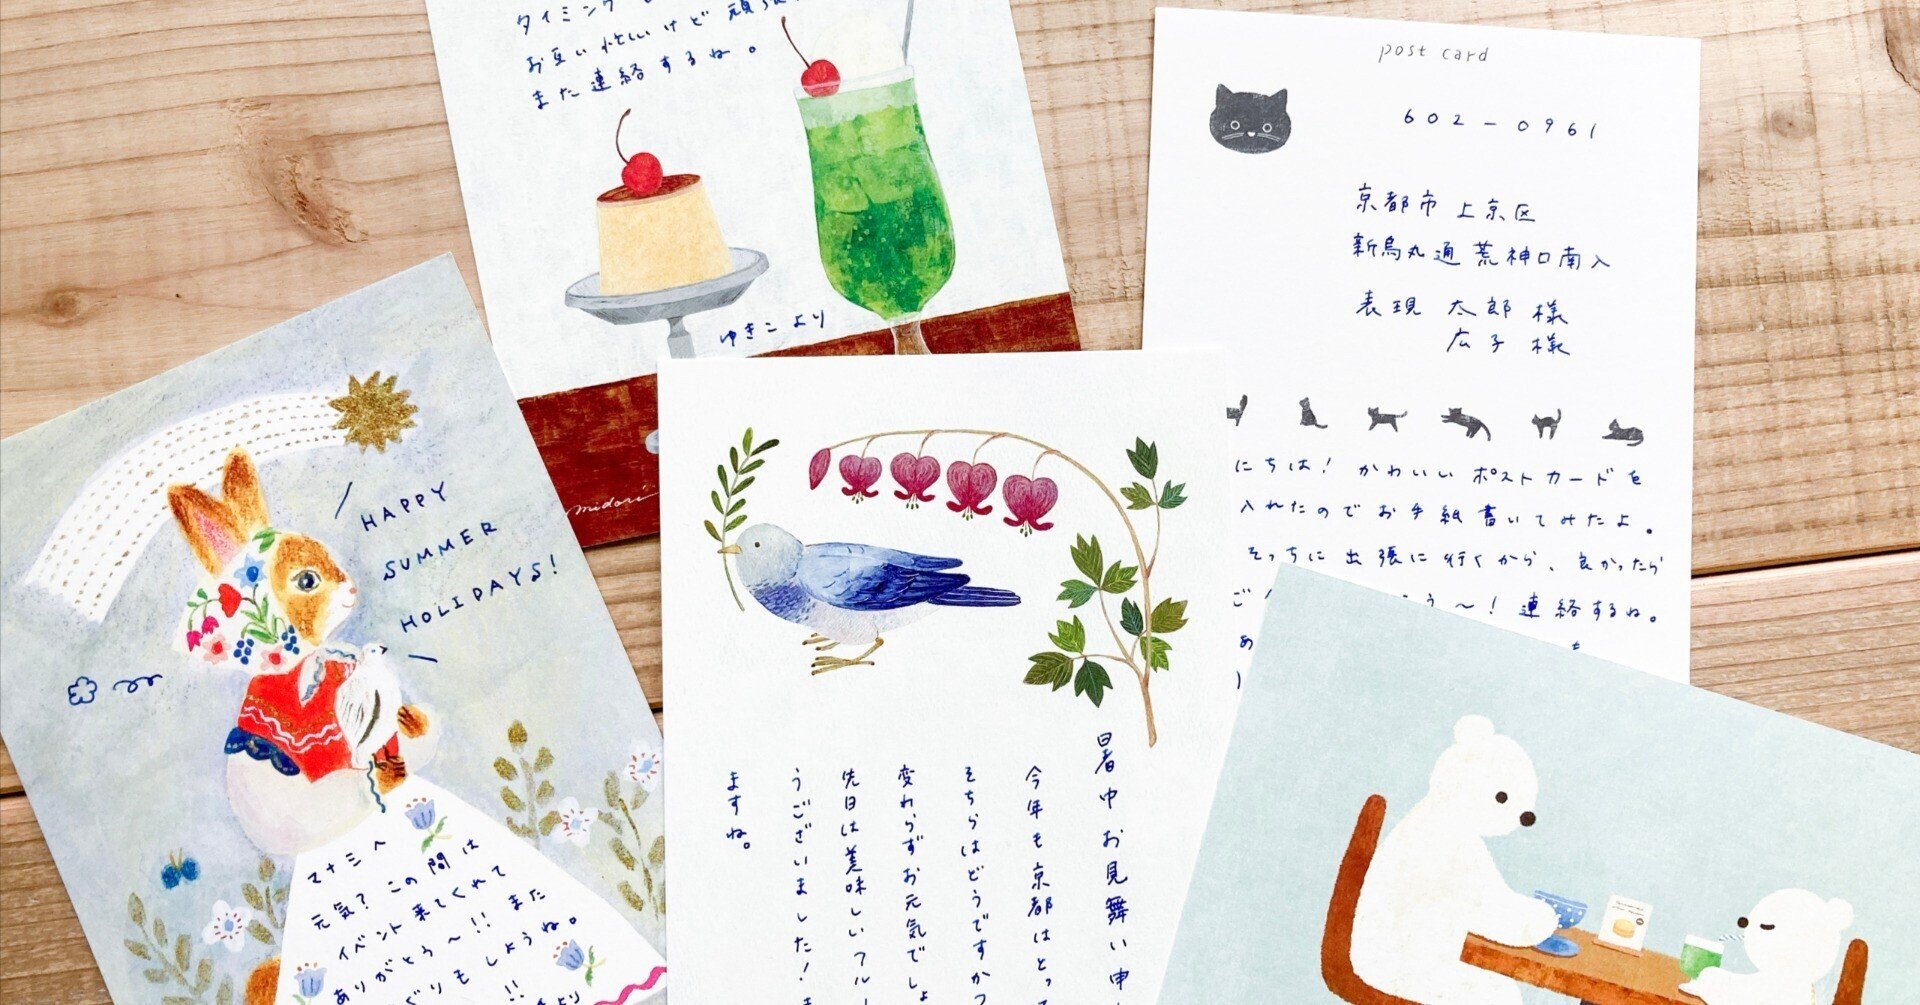 タイミング
お互い忙しいけど頑張
また連絡するね。
ゆきこより
midori
post card
602-0961
京都市上京区
新烏丸通荒神口南入
表現 太郎 様
広子 様
にちは! かわいいポストカードを
入れたのでお手紙書いてみたよ。
そっちに出張に行くから、良かったら
う〜! 連絡するね。
あ
HAPPY
SUMMER
HOLIDAYS!
マナミへ
元気? この間は
イベント来てくれて
ありがとう〜!! また
ぐりもしようね。
!!
より
暑中お見舞い申
今年も京都はとっ
そちらはどうですか
変わらずお元気でしょ
先日は美味しいフルー
うございました!
ますね。